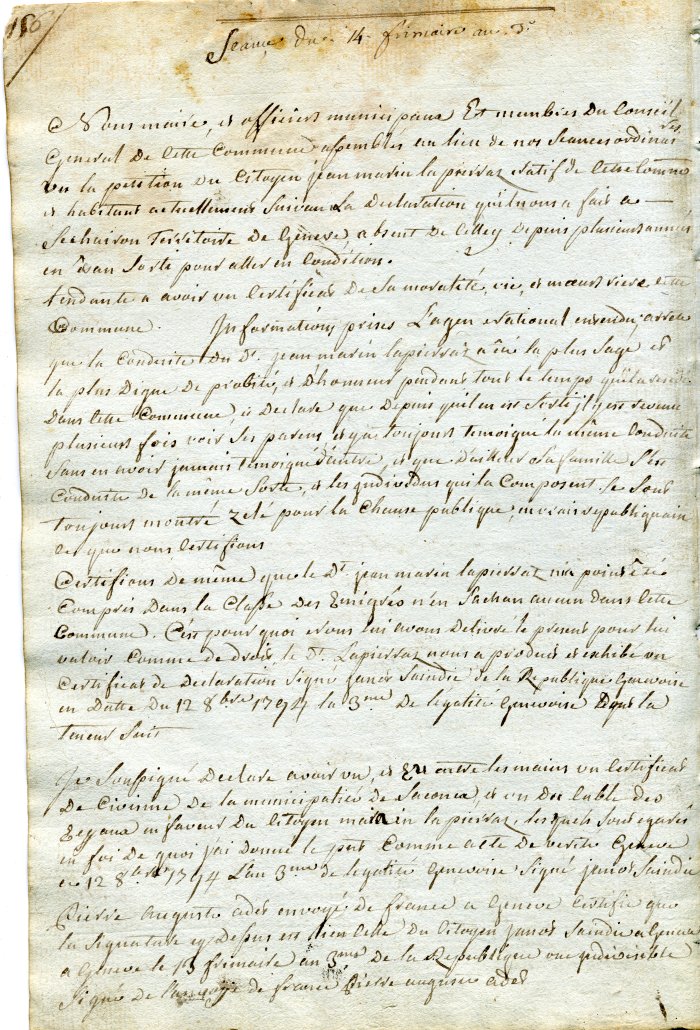 186
Seance du 14 frimaire an 3e
Nous maire, et officiers municipaux Et membres du Conseil
General de Cette Commune assemblés au lieu de nos Seances ordinaires
vu la petition du Citoyen jean marin la pierraz natif de Cette Comune
et habitant actuellement Suivan La Declaration qu'il nous a fait a
Territoire de Geneve, absent de Depuis plusieurs années
en Etan Sorti pour aller en Condition.
tendante a avoir un Certificat De Sa moralité, vie, et mœurs Cette
Commune. Informations prises L'agen national entendu, arrete
que la Conduite Du Dt. jean marin lapierraz a été la plus Sage et
la plus Digne de probité, et D'honneur pendant tout le temps qu'il a
Dans Cette Commune, et Declare que Depuis qu'il en est Sorti il y est revenu
plusieurs fois voir Ses parens, et y a toujours temoigné la même Conduite
Sans en avoir jamais temoigné D'autre, et que D'ailleur Sa famille S'est
Conduite De la même Sorte, et les individus qui la Composent Se Sont
Toujours montré zelé pour la Chause publique, en vrais republiquain
Ce que nous Certifions
Certifions De même que le Dt jean marin lapierraz n'a point été
Compris Dans la Classe Des Emigrés n'en Sachan aucun Dans Cette
Commune. C'est pour quoi nous lui avons Delivré le present pour lui
valoir Comme de droit le Dt. Lapierraz nous a produit et exhibé un
Certificat de Declaration Signé janot Saindie de la Republique Genevoise
en Datte Du 12 8bre 1794 la 3me De l'egalité Genevoise Dont la
teneur Suit
Je Soussigné Declare avoir vu, et Eu entre les mains un Certificat
De Civisme De la municipalité de Saconex, et un Du Cable des
Egaux en faveur Du Citoyen marin la pierraz, lesquels Sont egarés
en foi De quoi j'ai Donné le pnt Comme acte De verité Geneve
Ce 12 8bre 1794 L'an 3me De l'egalité Genevoise Signé janot Saindie
Pierre Auguste adet envoyé de france a Geneve Certifie que
la Signature cy Dessus est bien Celle Du Citoyen janot Saindie a Geneve
a Geneve le 13 frimaire an 3me De la Republique une indivisible
Signé De l'envoyé de france Pierre auguste adet